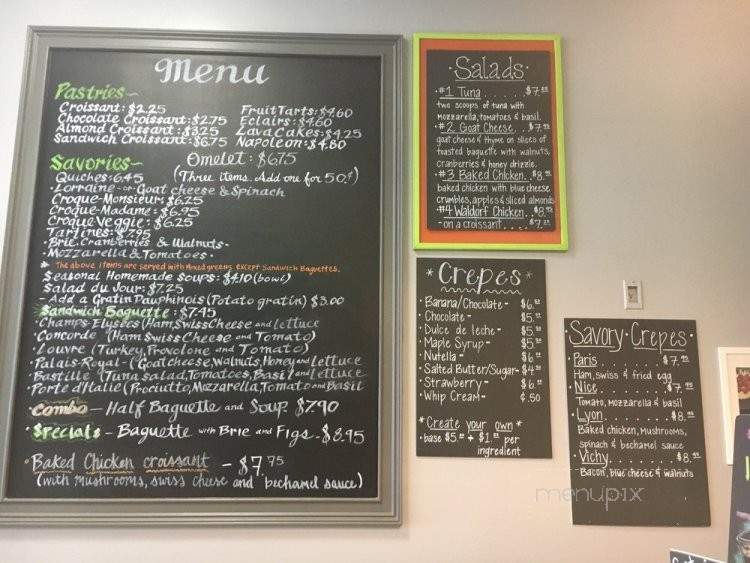 Menu
Pastries-
Croissant: $2.25
Chocolate Croissant: $2.75
Almond Croissant: $3.25
Sandwich Croissant: $6.75
Fruit Tarts: $4.60
Eclairs: $4.60
Lava Cakes: $4.25
Napoleon: $4.80
Savories-
Omelet: $6.75
(Three items. Add one for 50¢)
Quiches: 6.45
·Lorraine -or- Goat cheese & Spinach
Croque-Monsieur: $6.25
Croque-Madame: $6.95
Croque Veggie: $6.25
Tartines: 7.95
·Brie, Cranberries & Walnuts·
·Mozzarella & Tomatoes·
* The above items are served with Mixed greens, except Sandwich Baguettes.
Seasonal Homemade Soups: $4.10 (bowl)
Salad du Jour: $7.25
Add a Gratin Dauphinois (Potato gratin) $3.00
Sandwich Baguette: $7.45
·Champs-Elysees (Ham, Swiss Cheese and Lettuce
·Concorde (Ham, Swiss Cheese and Tomato)
·Louvre (Turkey, Provolone and Tomato)
·Palais-Royal-(Goat cheese, Walnuts, Honey and Lettuce
·Bastille (Tuna salad, Tomatoes, Basil and lettuce
·Porte d'Italie (Prociutto, Mozzarella, Tomato and Basil
Combo - Half Baguette and Soup $7.90
·Specials - Baguette with Brie and Figs - $8.95
·Baked Chicken croissant - $7.75
(with mushrooms, swiss cheese and bechamel sauce)
·Salads·
·#1 Tuna
two scoops of tuna with
mozzarella, tomatoes & basil.
·#2 Goat Cheese
goat cheese & thyme on slices of
toasted baguette with walnuts,
cranberries & honey drizzle.
·#3 Baked Chicken
baked chicken with blue cheese
crumbles, apples & sliced almonds
·#4 Waldorf Chicken
-on a croissant
*Crepes*
·Banana/Chocolate -
·Chocolate -
·Dulce de leche -
·Maple Syrup -
·Nutella -
·Salted Butter/Sugar-
·Strawberry -
·Whip Cream - ¢.50
*Create your own*
·base $5. + $1. per
ingredient
Savory·Crepes
·Paris
Ham, swiss & fried egg
·Nice
Tomato, Mozzarella & basil
·Lyon
Baked chicken, mushrooms,
spinach & bechamel sauce
·Vichy
Bacon, blue cheese & walnuts
menupix